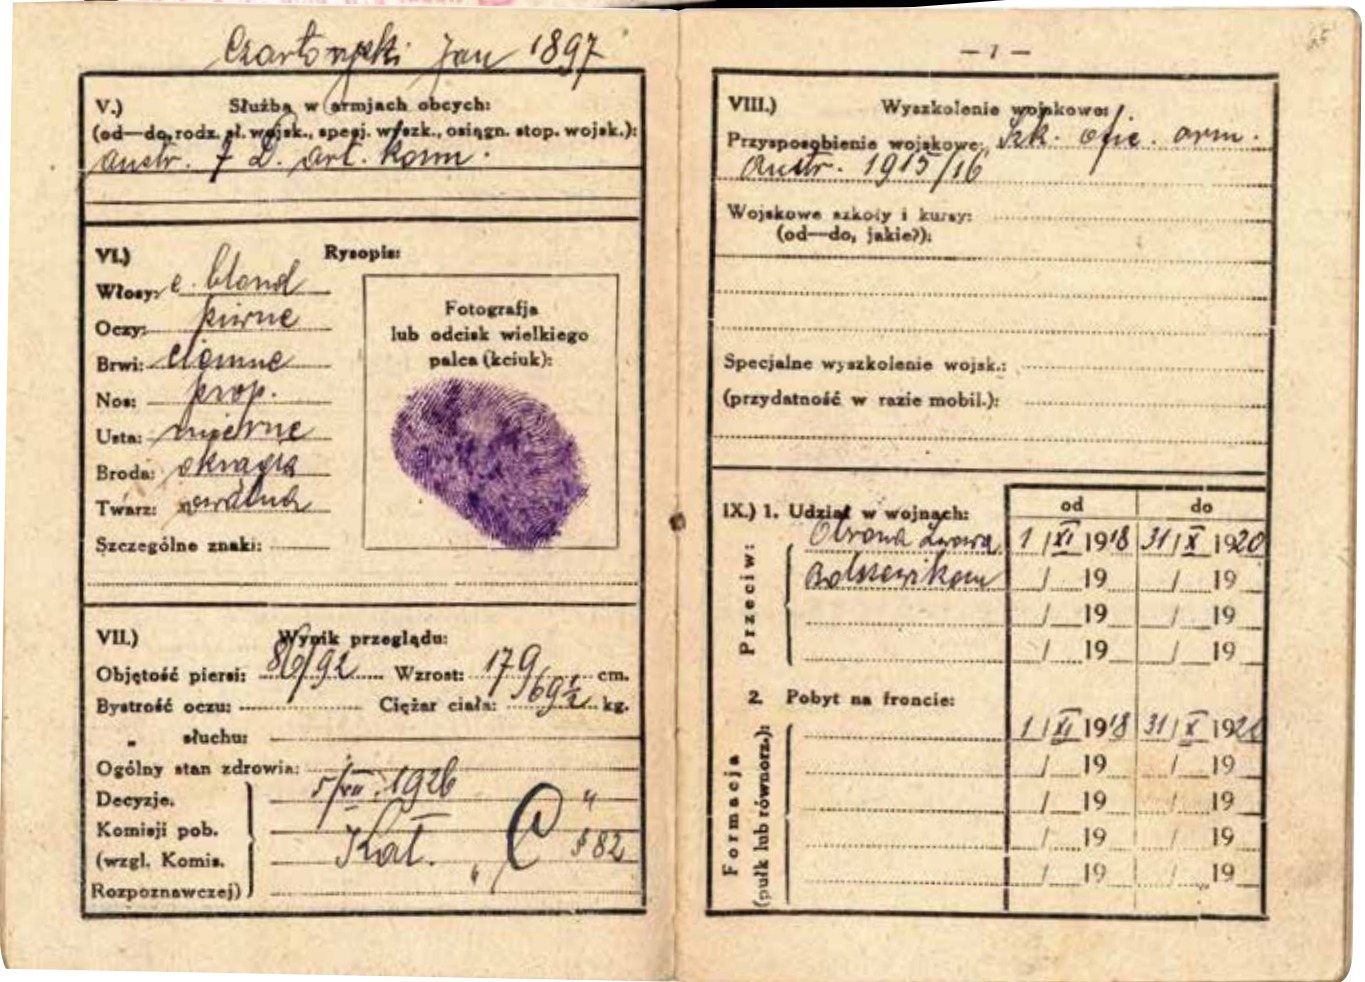 Czartoryski Jan 1897
V.) Służba w armjach obcych:
(od—do, rodz. sł. wojsk., specj. wyszk., osiągn. stop. wojsk.):
austr. 7 D. art. konn.
VI.) Rysopis:
Włosy: c. blond
Oczy: piwne
Brwi: ciemne
Nos: prop.
Usta: mierne
Broda: okrągła
Twarz: owalna
Szczególne znaki:
Fotografja
lub odcisk wielkiego
palca (kciuk):
VII.) Wynik przeglądu:
Objętość piersi: 86/92 Wzrost: 179 cm.
Bystrość oczu: Ciężar ciała: 69½ kg.
„ słuchu:
Ogólny stan zdrowia:
Decyzje. 5/VII. 1926 „
Komisji pob.
(wzgl. Komis. Kat. „ C § 82
Rozpoznawczej)
— 7 —
VIII.) Wyszkolenie wojskowe:
Przysposobienie wojskowe: szk. ofic. arm.
austr. 1915/16
Wojskowe szkoły i kursy:
(od—do, jakie?):
Specjalne wyszkolenie wojsk.:
(przydatność w razie mobil.):
IX.) 1. Udział w wojnach: od do
Przeciw:
Obrona Lwowa 1 / XI 1918 31 / X 1920
Bolszewikom / 19 / 19
/ 19 / 19
/ 19 / 19
2. Pobyt na froncie:
Formacja
(pułk lub równorz.):
1 / XI 1918 31 / X 1920
/ 19 / 19
/ 19 / 19
/ 19 / 19
/ 19 / 19